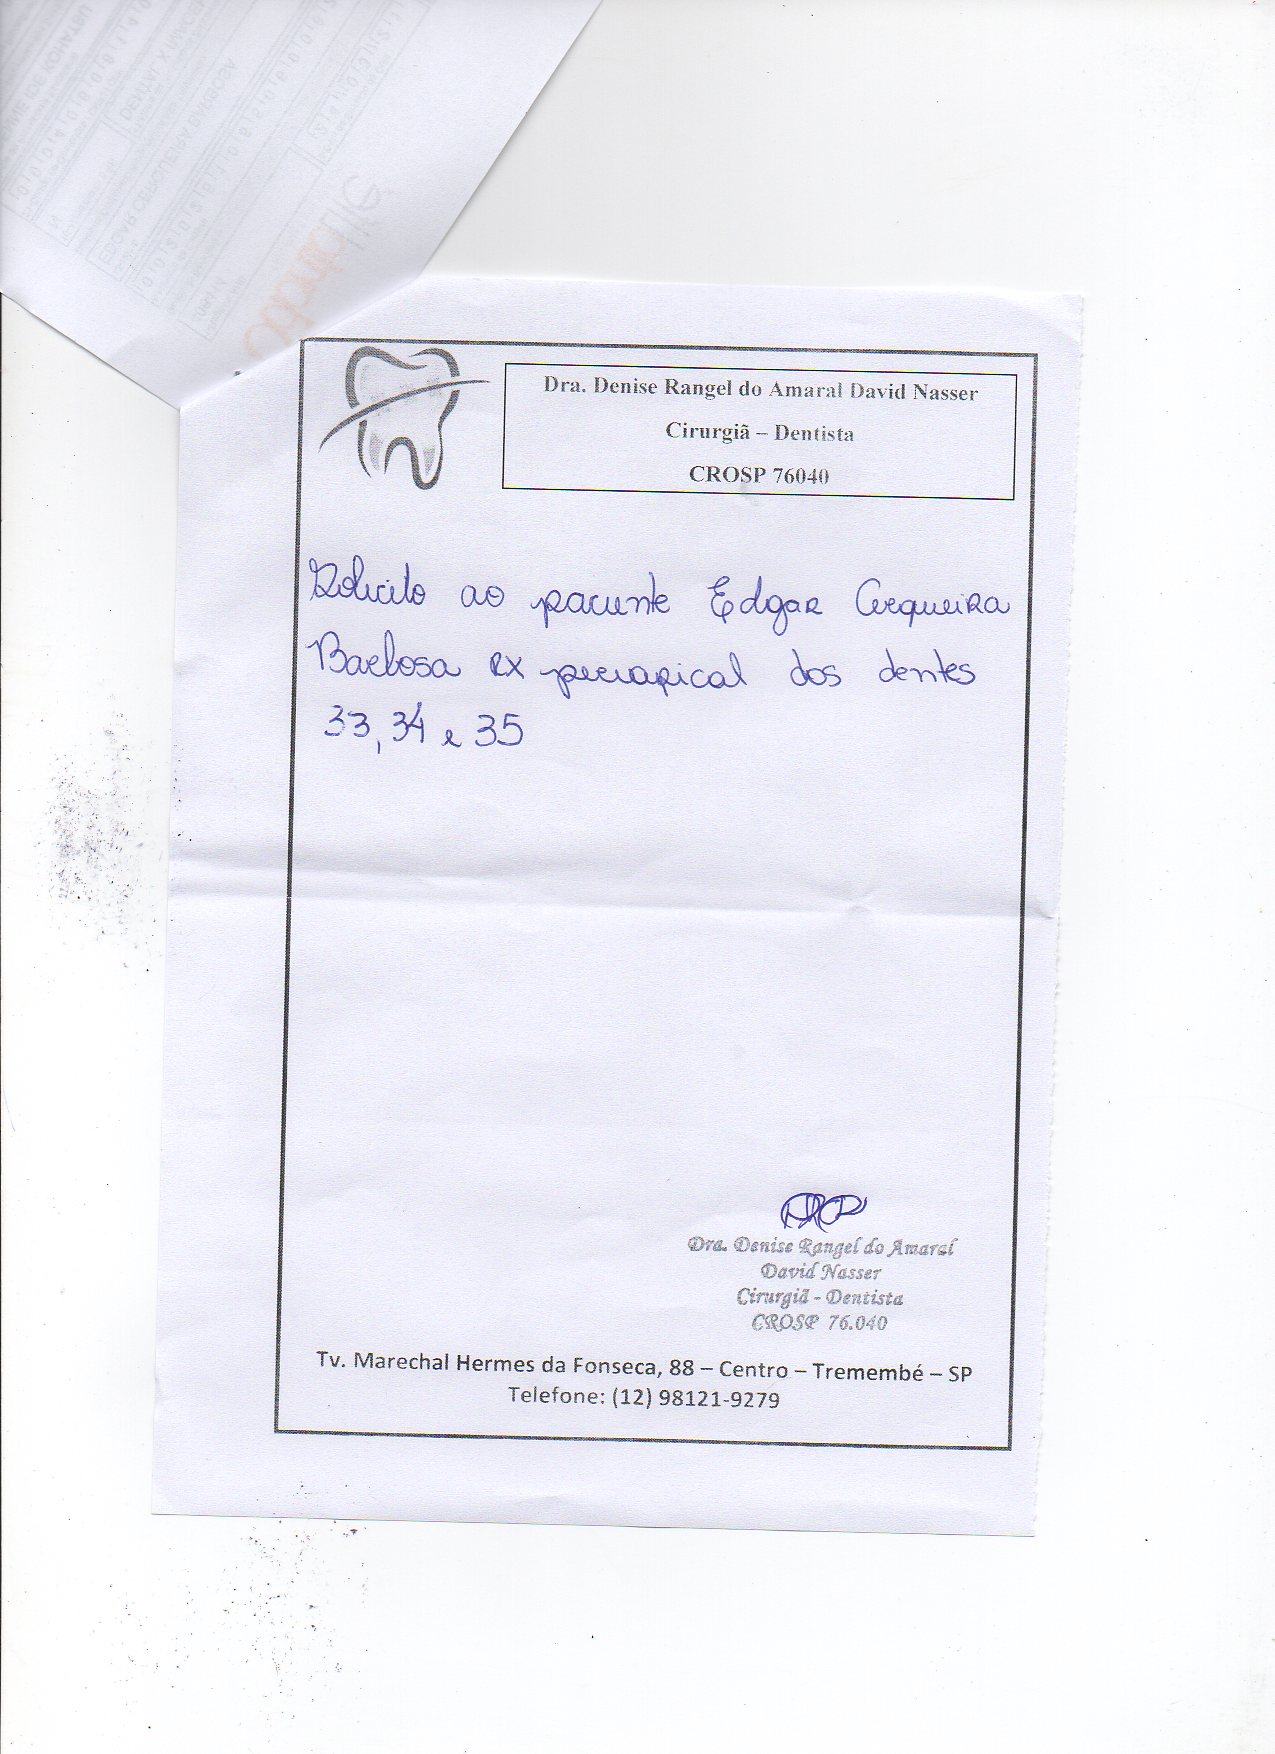 Dra. Denise Rangel do Amaral David Nasser
Cirurgiã – Dentista
CROSP 76040
Solicito ao paciente Edgar Cerqueira
Barbosa RX periapical dos dentes
33, 34 e 35
Dra. Denise Rangel do Amaral
David Nasser
Cirurgiã - Dentista
CROSP 76.040
Tv. Marechal Hermes da Fonseca, 88 – Centro – Tremembé – SP
Telefone: (12) 98121-9279